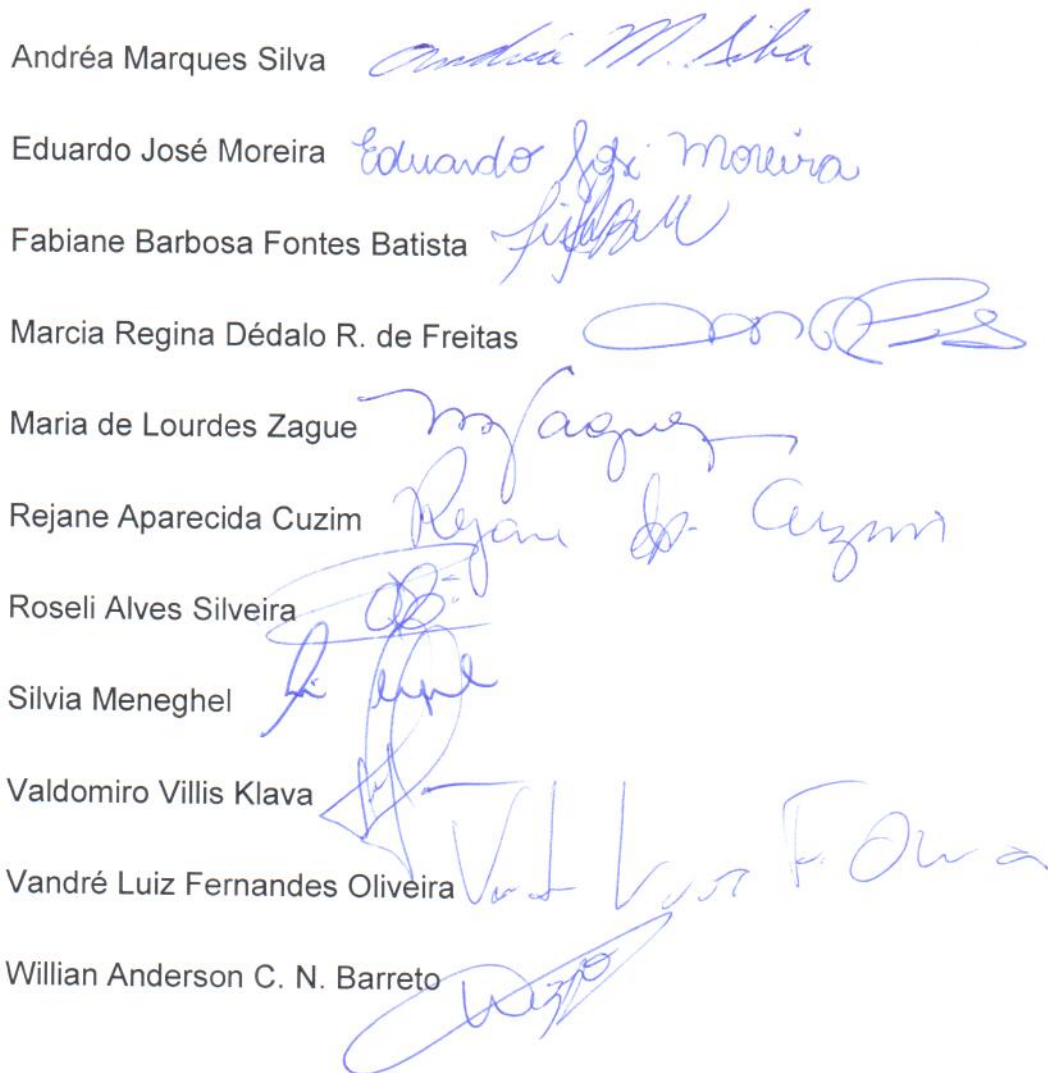 Andréa Marques Silva Andréa M. Silva
Eduardo José Moreira Eduardo José Moreira
Fabiane Barbosa Fontes Batista
Marcia Regina Dédalo R. de Freitas
Maria de Lourdes Zague
Rejane Aparecida Cuzim Rejane Ap. Cuzim
Roseli Alves Silveira
Silvia Meneghel
Valdomiro Villis Klava
Vandré Luiz Fernandes Oliveira
Willian Anderson C. N. Barreto